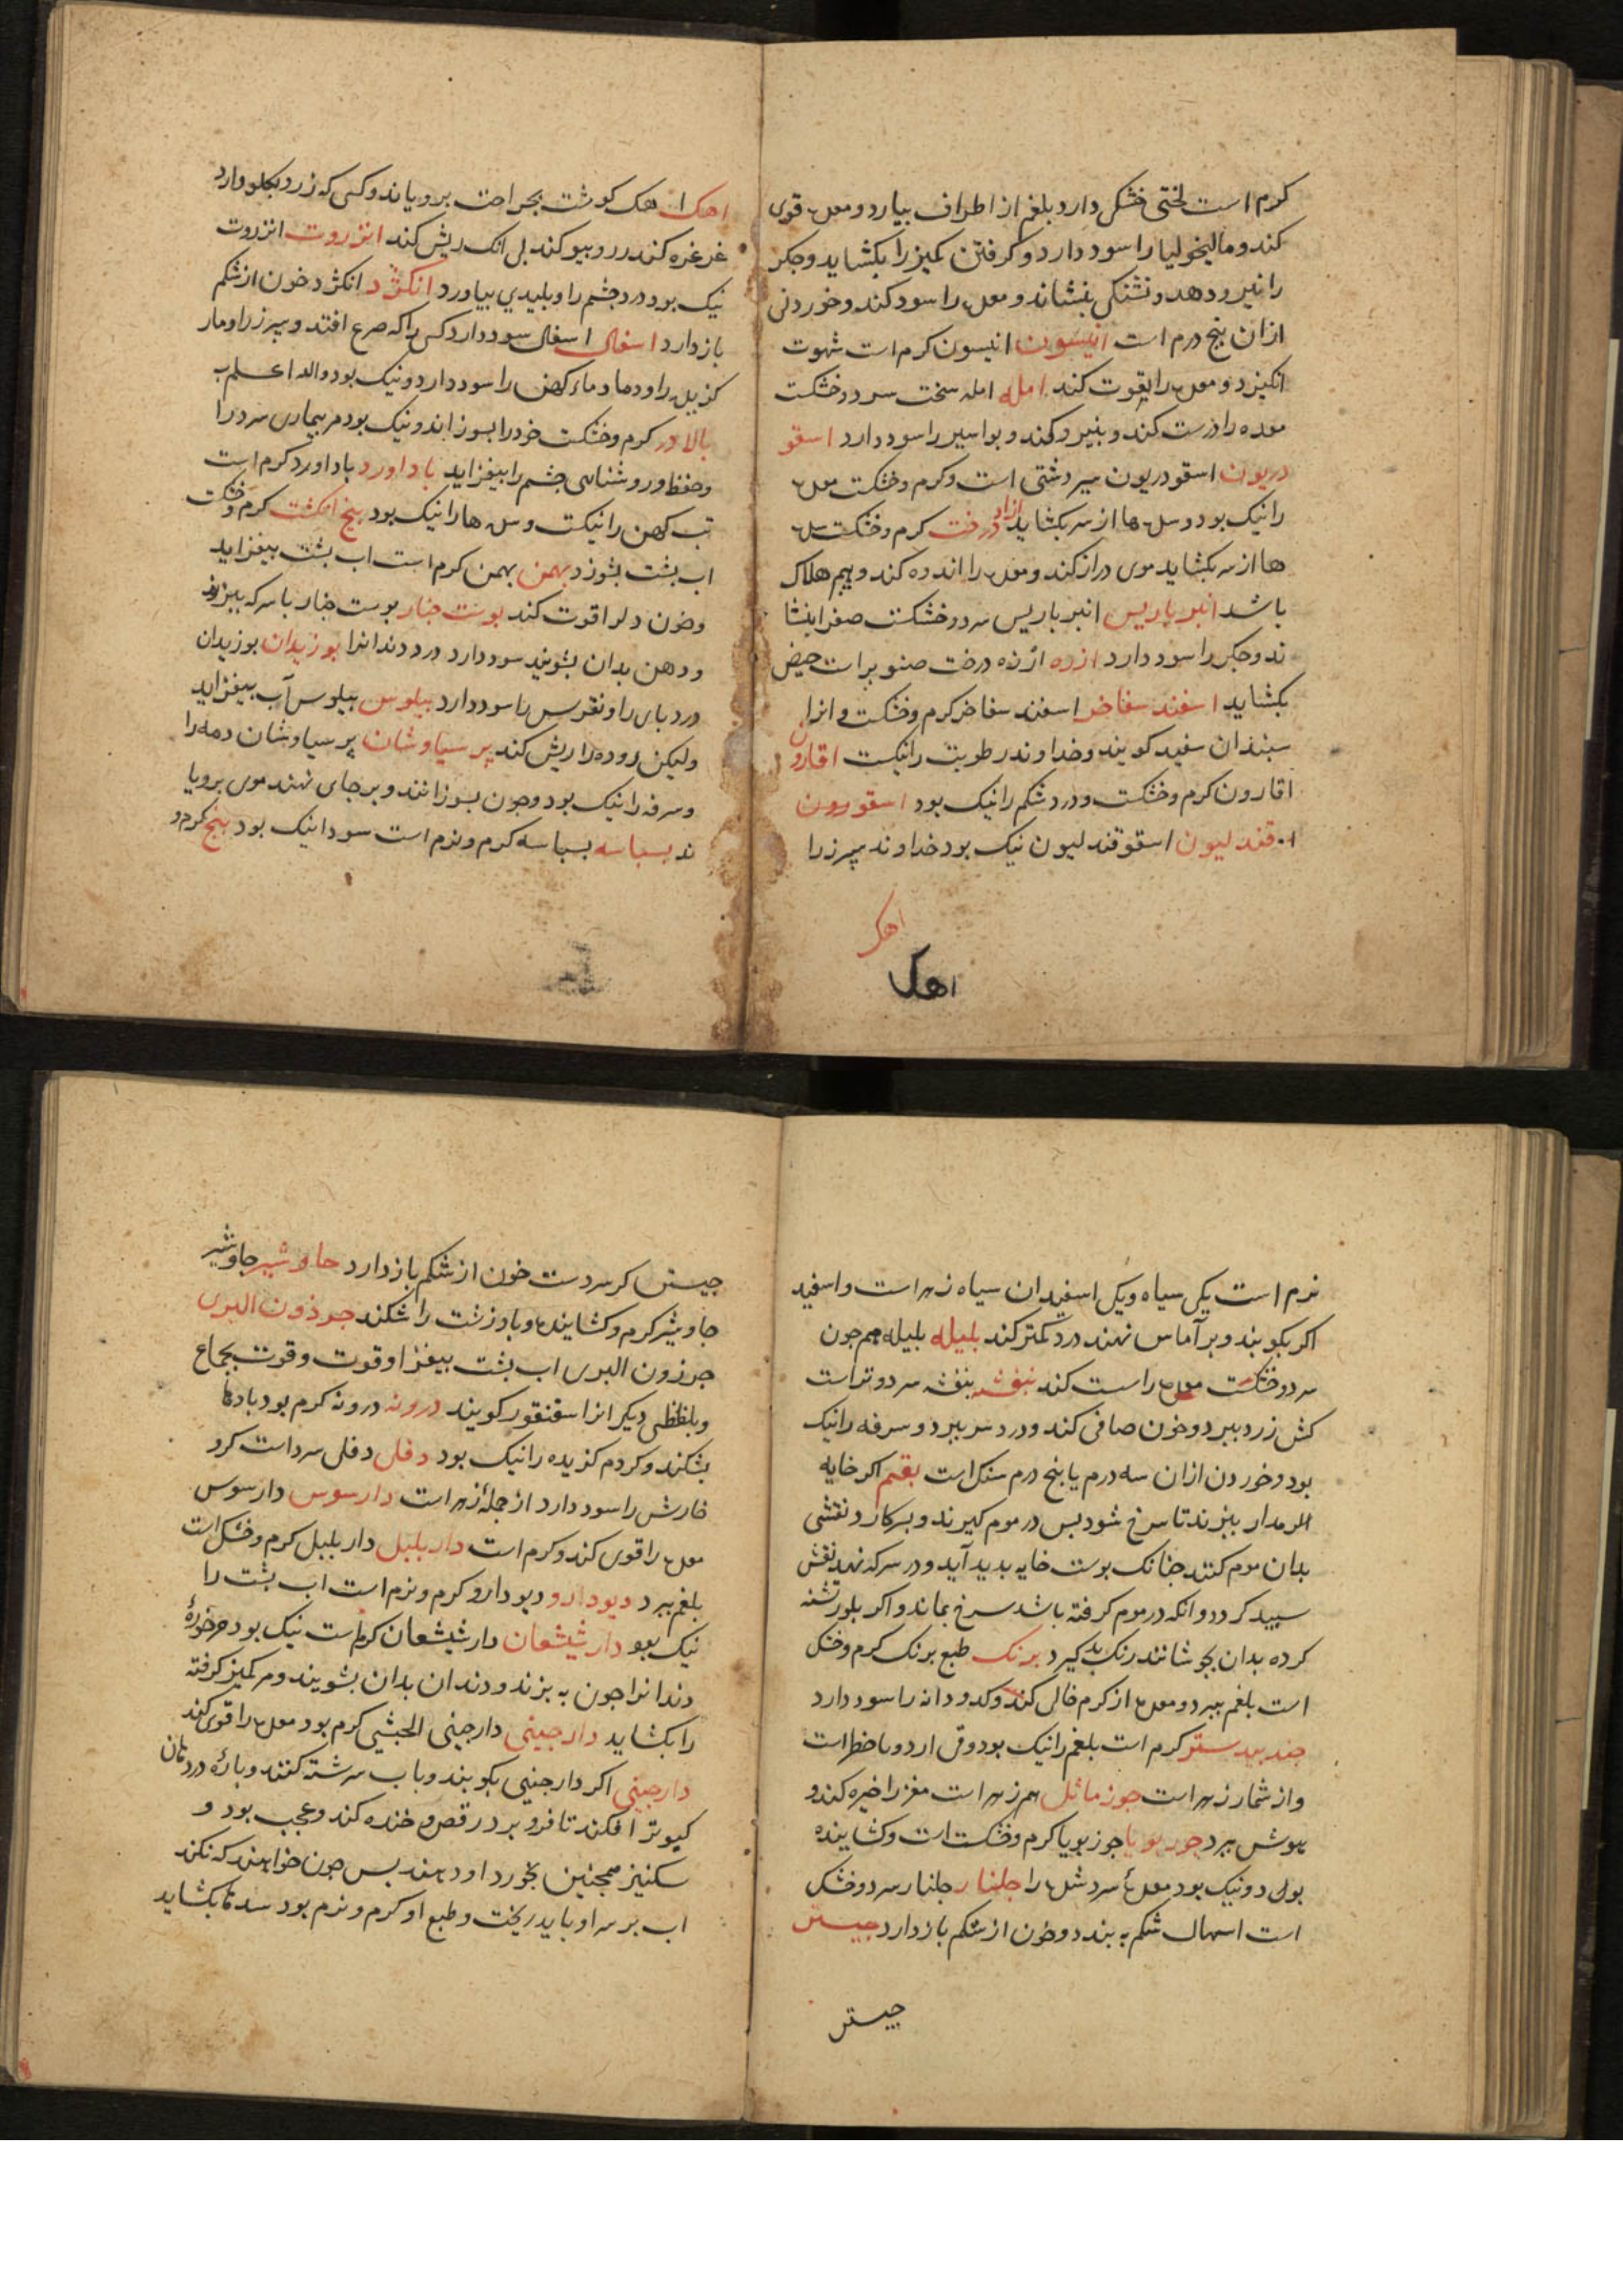 کرم است لختی خشکی دارد بلغم از اطراف بیارد و معده قوی
کند و مالیخولیا را سود دارد و کرفتن کمیز را بکشاید و جکر
را نیرو دهد و تشنکی بنشاند و معده را سود کند و خوردنی
ازان پنج درم است انیسون انیسون کرم است شهوت
انکیزد و معده را بقوت کند امله امله سخت سرد و خشکست
معده را درست کند و بنیرو کند و بواسیر را سود دارد اسقو
دریون اسقودریون سیر دشتی است و کرم و خشکست معده
را نیک بود و سده ها از سر بکشاید ازاد درخت کرم و خشکست سده
ها از سر بکشاید موی دراز کند و معده را اندوه کند و بیم هلاک
باشد انبر باریس انبر باریس سرد و خشکست صفرا بنشا
ند و جکر را سود دارد ازده ازده درخت صنوبر است حیض
بکشاید اسفند سفاخر اسفند سفاخر کرم و خشکست و انرا
سبندان سفید کویند و خداوند رطوبت را نیکست اقارون
اقارون کرم و خشکست و درد شکم را نیک بود اسقورون
قندلیون اسقوقندلیون نیک بود خداوند سپرز را
اهک
اهک
اهک اهک کوشت بجراحت برویاند و کسی که زرد بکلو دارد
غرغره کند رو بیو کند بل انک ریش کند انزروت انزروت
نیک بود درد چشم را و بلیدی بیاورد انکژد انکژد خون از شکم
باز دارد اسقال اسقال سود دارد کسی را که صرع افتد و سپرز را و مار
کزیده را و دما دماء کهن را سود دارد و نیک بود والله اعلم ب
بالادر کرم و خشکست خود را بسوزاند و نیک بود مر بیماری سرد را
و حفظ و روشنائی چشم را بیفزاید باداورد باداورد کرم است
تب کهن را نیکست و سده ها را نیک بود پنج انکشت کرم و خشکست
اب پشت بشوزد بهمن بهمن کرم است اب پشت بیفزاید
و خون دلرا قوت کند پوست چنار پوست چنار با سرکه بپزند
و دهن بدان بشویند سود دارد درد دندانرا بوزیدان بوزیدان
درد پای را و نقرس را سود دارد بیلوس بیلوس آب بیفزاید
ولیکن روده را ریش کند پر سیاوشان پر سیاوشان دمه را
و سرفه را نیک بود و چون بسوزانند و بر جای نهند موی برویا
ند بسباسه بسباسه کرم و نرم است سودا نیک بود بنج کرم و
نرم است یکی سیاه و یکی اسفید ان سیاه زهر است و اسفید
اکر بکوبند و بر آماس نهند درد کمتر کند بلیله بلیله همچون
سرد و خشکست معده راست کند بنفشه بنفشه سرد و تر است
کش زرد ببرد و خون صافی کند و درد سر ببرد و سرفه را نیک
بود و خوردن ازان سه درم یا پنج درم سنک است بقم اکر خایه
المرمدار بپزند تا سرخ شود پس در موم کیرند و بسر کارد نقشی
بدان موم کنند چنانک پوست خایه پدید آید و در سرکه نهد نقش
سپید کردد و انکه در موم کرفته باشد سرخ بماند و اکر بلور تشنه
کرده بدان بجوشانند رنک بکیرد برنک طبع برنک کرم و خشک
است بلغم ببرد و معده از کرم خالی کند و کدو دانه را سود دارد
جند بیدستر کرم است بلغم را نیک بود و قی ارد و با خطر است
و از شمار زهر است جوز ماثل هم زهر است مغز را خیره کند و
هوش ببرد جوز بویا جوز بویا کرم و خشکست است و کشاینده
بول و نیک بود معدهٔ سرد شده را جلنار جلنار سرد و خشک
است اسهال شکم به بندد و خون از شکم باز دارد جیستن
جیستن
جیستن کر سردست خون از شکم باز دارد جاوشیر جاوشیر
جاوشیر کرم و کشاینده و باد زشت را شکند جرذون البری
جرزون البری اب پشت بیفزا و قوت و قوت بجماع
و بلفظی دیکر انرا سقنقور کویند درونه درونه کرم بود بادها
بشکند و کژدم کزیده را نیک بود دفلی دفلی سرد است کرد
خارش را سود دارد از جملهٔ زهر است دارسوس دارسوس
معده را قوی کند و کرم است دار بلبل دار بلبل کرم و خشک است
بلغم ببرد دیودارو دیودارو کرم و نرم است اب پشت را
نیک بود دارشیشعان دارشیشعان کرم است نیک بود مر خورهٔ
دندانرا چون به بزند و دندان بدان بشویند و مر کمیز کرفته
را بکشاید دارجینی دارجینی الحبشی کرم بود معده را قوی کند
دارجینی اکر دارجینی بکوبند و باب سرشته کنند و پارهٔ در دهان
کبوتر افکند تا فرو برد رقص و خنده کند و عجب بود و
سکنیز همچنین بخورد او دهند پس چون خواهند که نکند
اب بر سر او باید ریخت و طبع او کرم و نرم بود سدها بکشاید